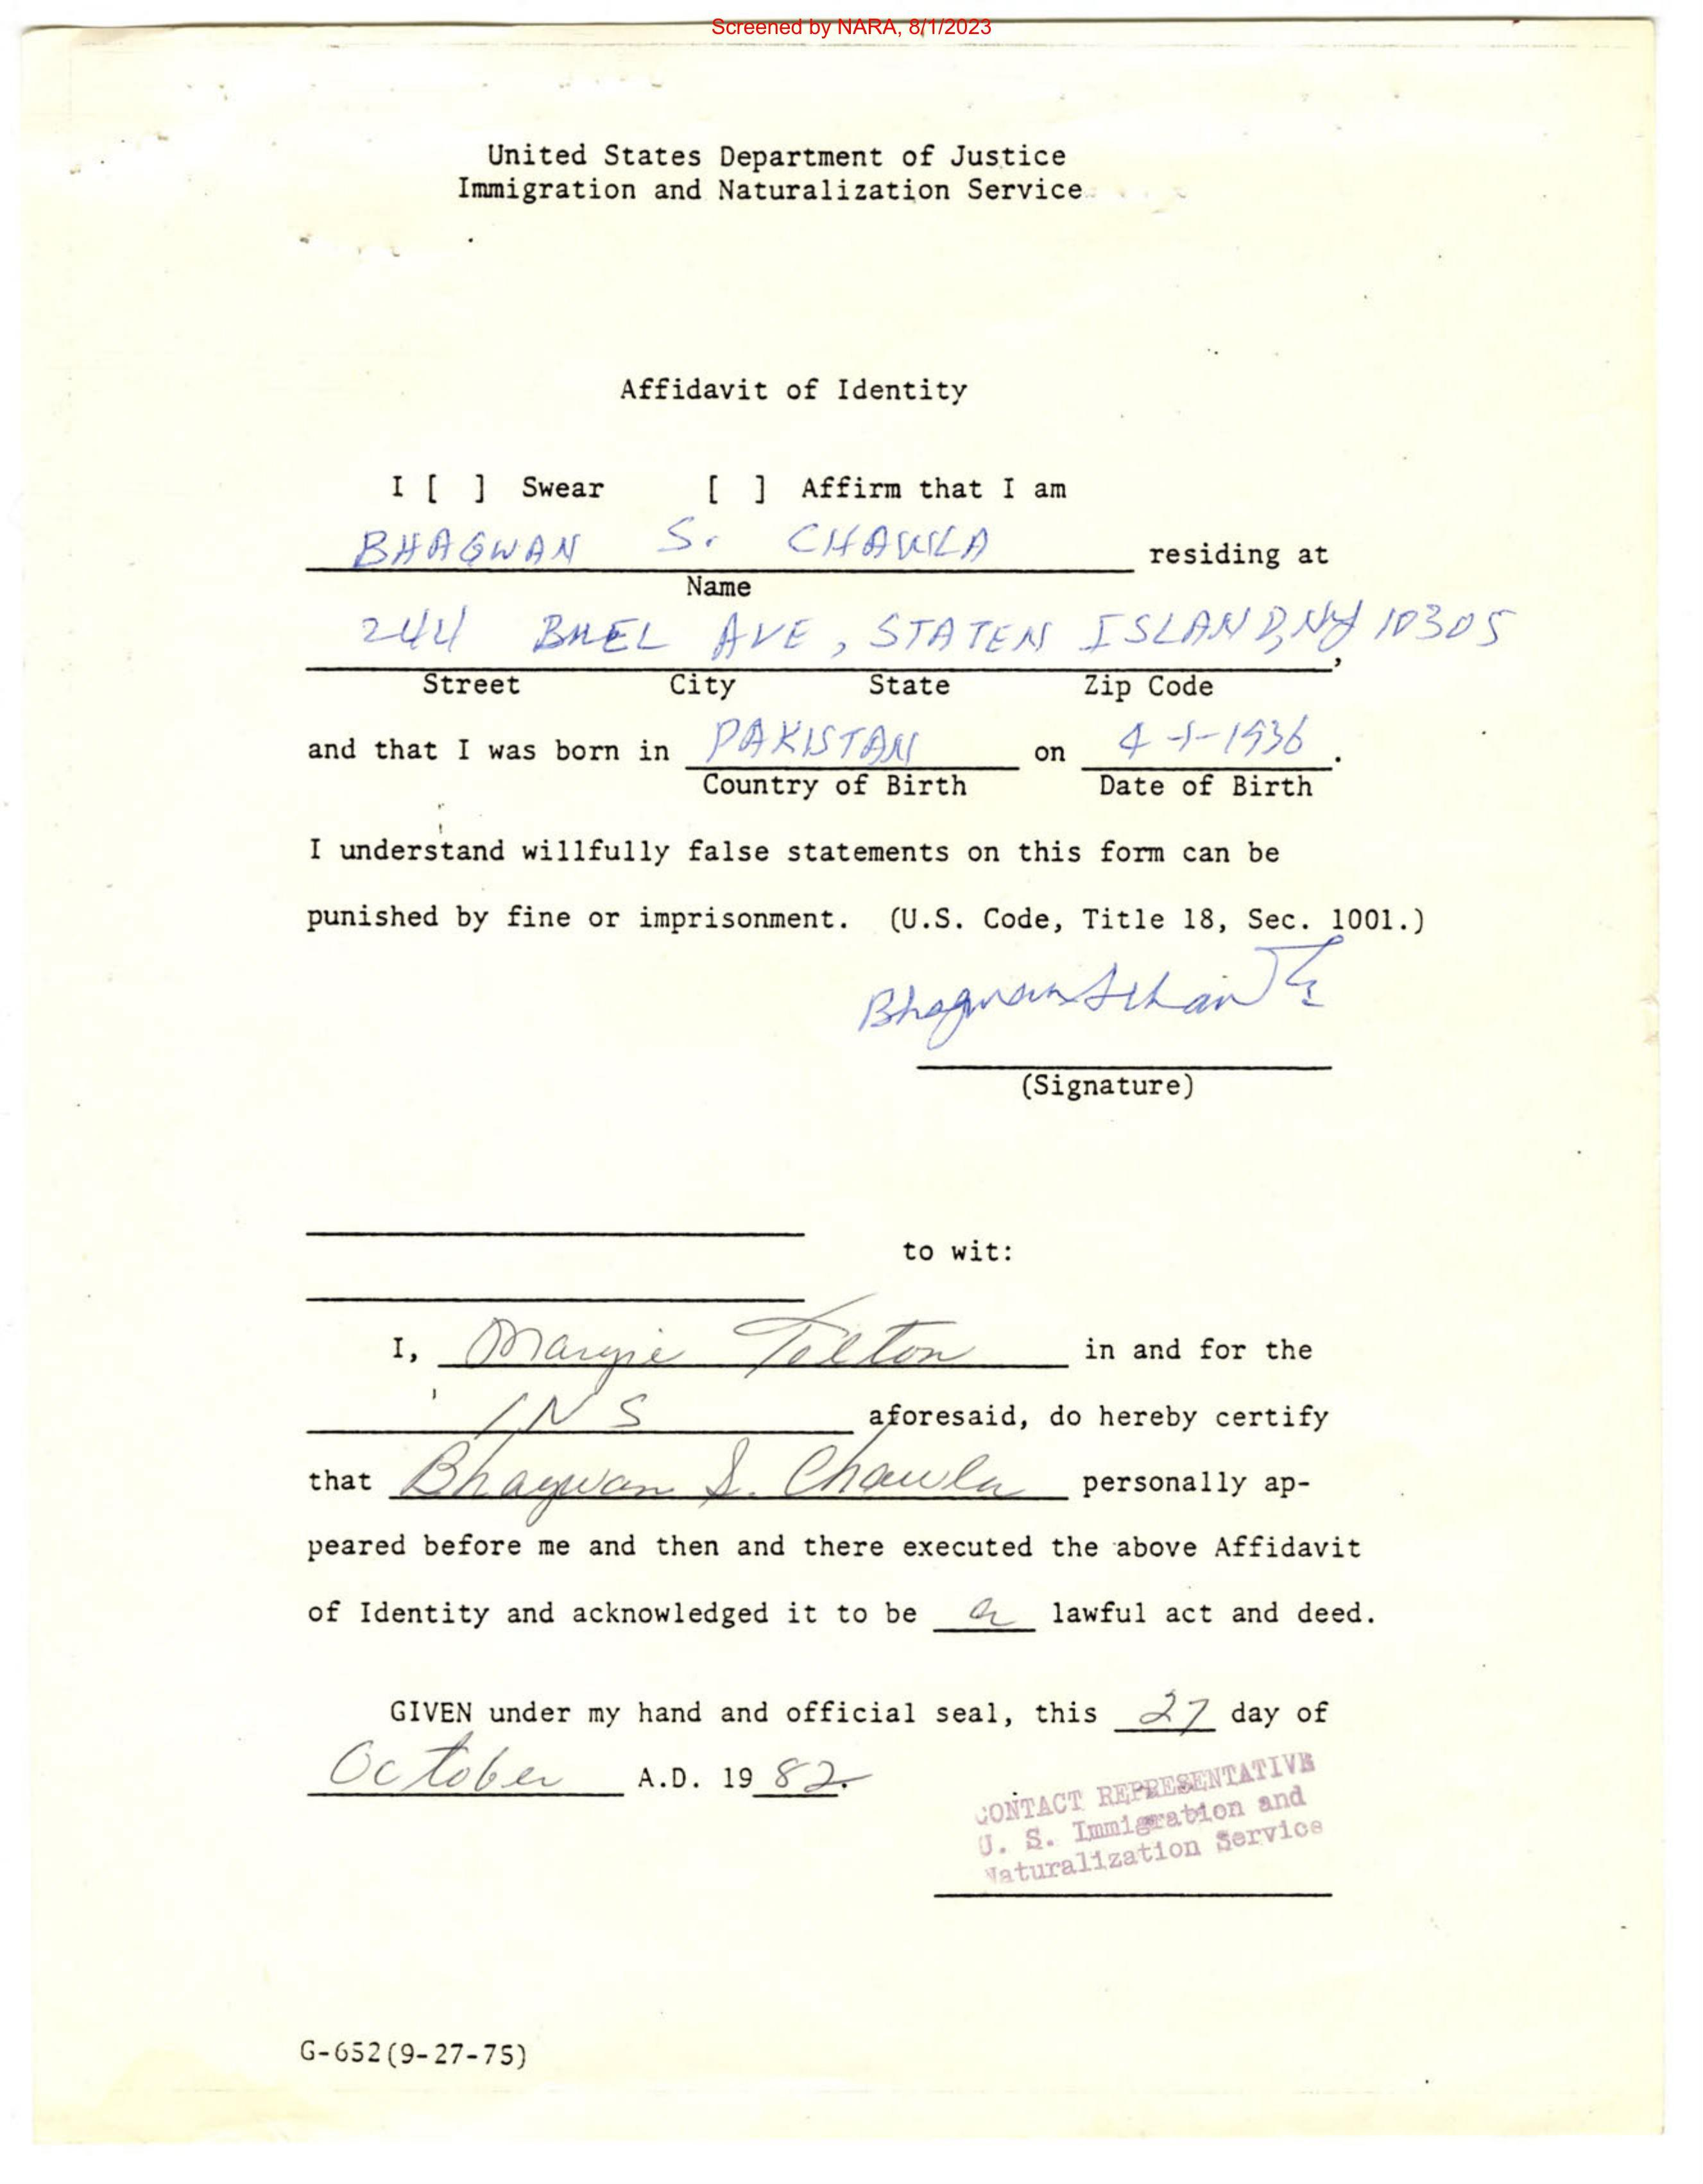 Screened by NARA, 8/1/2023
United States Department of Justice
Immigration and Naturalization Service
Affidavit of Identity
I [ ] Swear [ ] Affirm that I am
BHAGWAN S. CHAWLA residing at
Name
244 AVE, STATEN ISLAND, NY 10305
,
Street City State Zip Code
and that I was born in PAKISTAN on 4-1-1936.
Country of Birth Date of Birth
I understand willfully false statements on this form can be
punished by fine or imprisonment. (U.S. Code, Title 18, Sec. 1001.)
(Signature)
to wit:
I, Margie Tolton in and for the
INS aforesaid, do hereby certify
that Bhagwan S. Chawla personally ap-
peared before me and then and there executed the above Affidavit
of Identity and acknowledged it to be a lawful act and deed.
GIVEN under my hand and official seal, this 27 day of
October A.D. 19 82.
CONTACT REPRESENTATIVE
U. S. Immigration and
Naturalization Service
G-652(9-27-75)